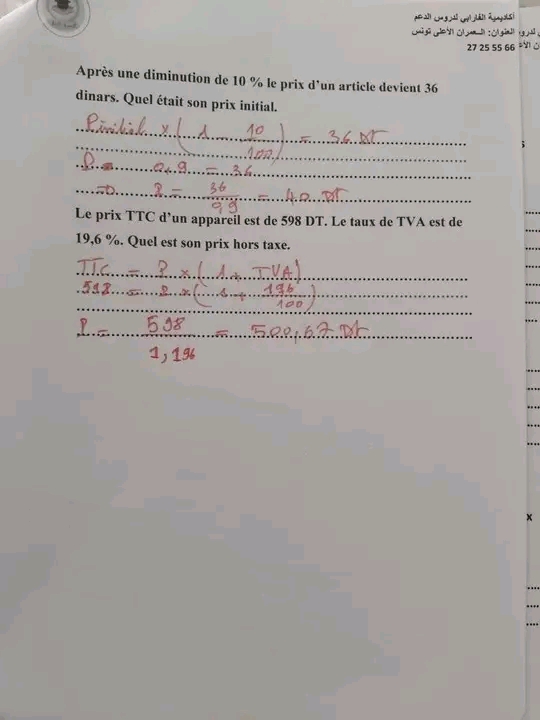 أكاديمية الفارابي لدروس الدعم
العنوان: العمران الأعلى تونس
27 25 55 66
Après une diminution de 10 % le prix d'un article devient 36
dinars. Quel était son prix initial.
Pinitial × ( 1 - 10/100 ) = 36 DT
P × 0,9 = 36
=> P = 36/0,9 = 40 DT
Le prix TTC d'un appareil est de 598 DT. Le taux de TVA est de
19,6 %. Quel est son prix hors taxe.
TTC = P × ( 1 + TVA )
598 = P × ( 1 + 196/100 )
P = 598/1,196 = 500,67 DT
x